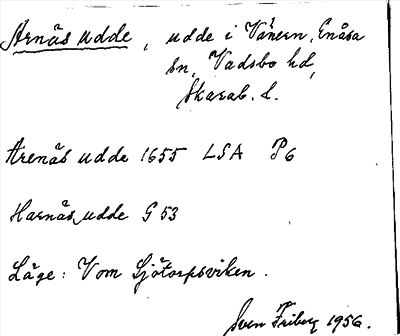 Arnäs udde, udde i Vänern, Enåsa
sn, Vadsbo hd,
Skarab. l.
Arenäs udde 1655 LSA P6
Harnäs udde G 53
Läge: Vom Sjötorpsviken.
Sven Friberg 1956.